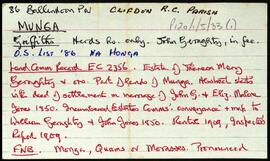 36 Ballendom Pw CLIFDEN R.C. PARISH
P120/1/5/33 (1)
MUNGA
Griffiths Herds Ho. only. John Geraghty, in fee.
O.S. LIST '86 NA MONGA
Land Comm Record EG 2356. Estate of Theresa Mary
Geraghty & ors. Part of lands of Munga. Abstract starts
with deed of settlement on marriage of John G. & Eliz. Moline
Jones 1850. Incumbered Estates Comms' conveyance & map to
William Geraghty & John Jones 1850. Rental 1909. Inspector's
Report 1909.
FNB. Monga, Quams or Morasses. Pronounced